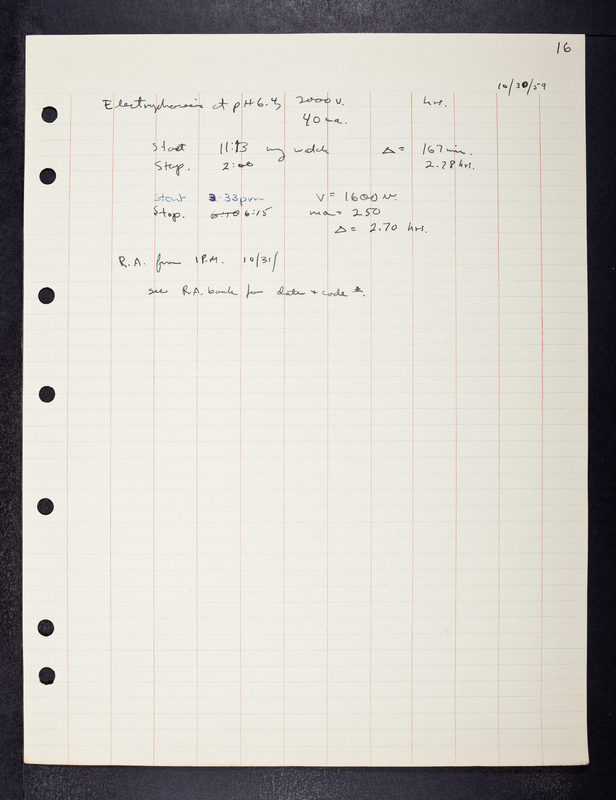 16
10/30/59
Electrophoresis at pH 6.4, 2000 v. hrs.
40 ma.
Start 11:13 my watch Δ = 167 min.
Stop. 2:00 2.78 hrs.
Start 3:33 pm V = 1600 v.
Stop. 6:10 6:15 ma = 250
Δ = 2.70 hrs.
R.A. from 1 P.M. 10/31/
see R.A. book for date + code